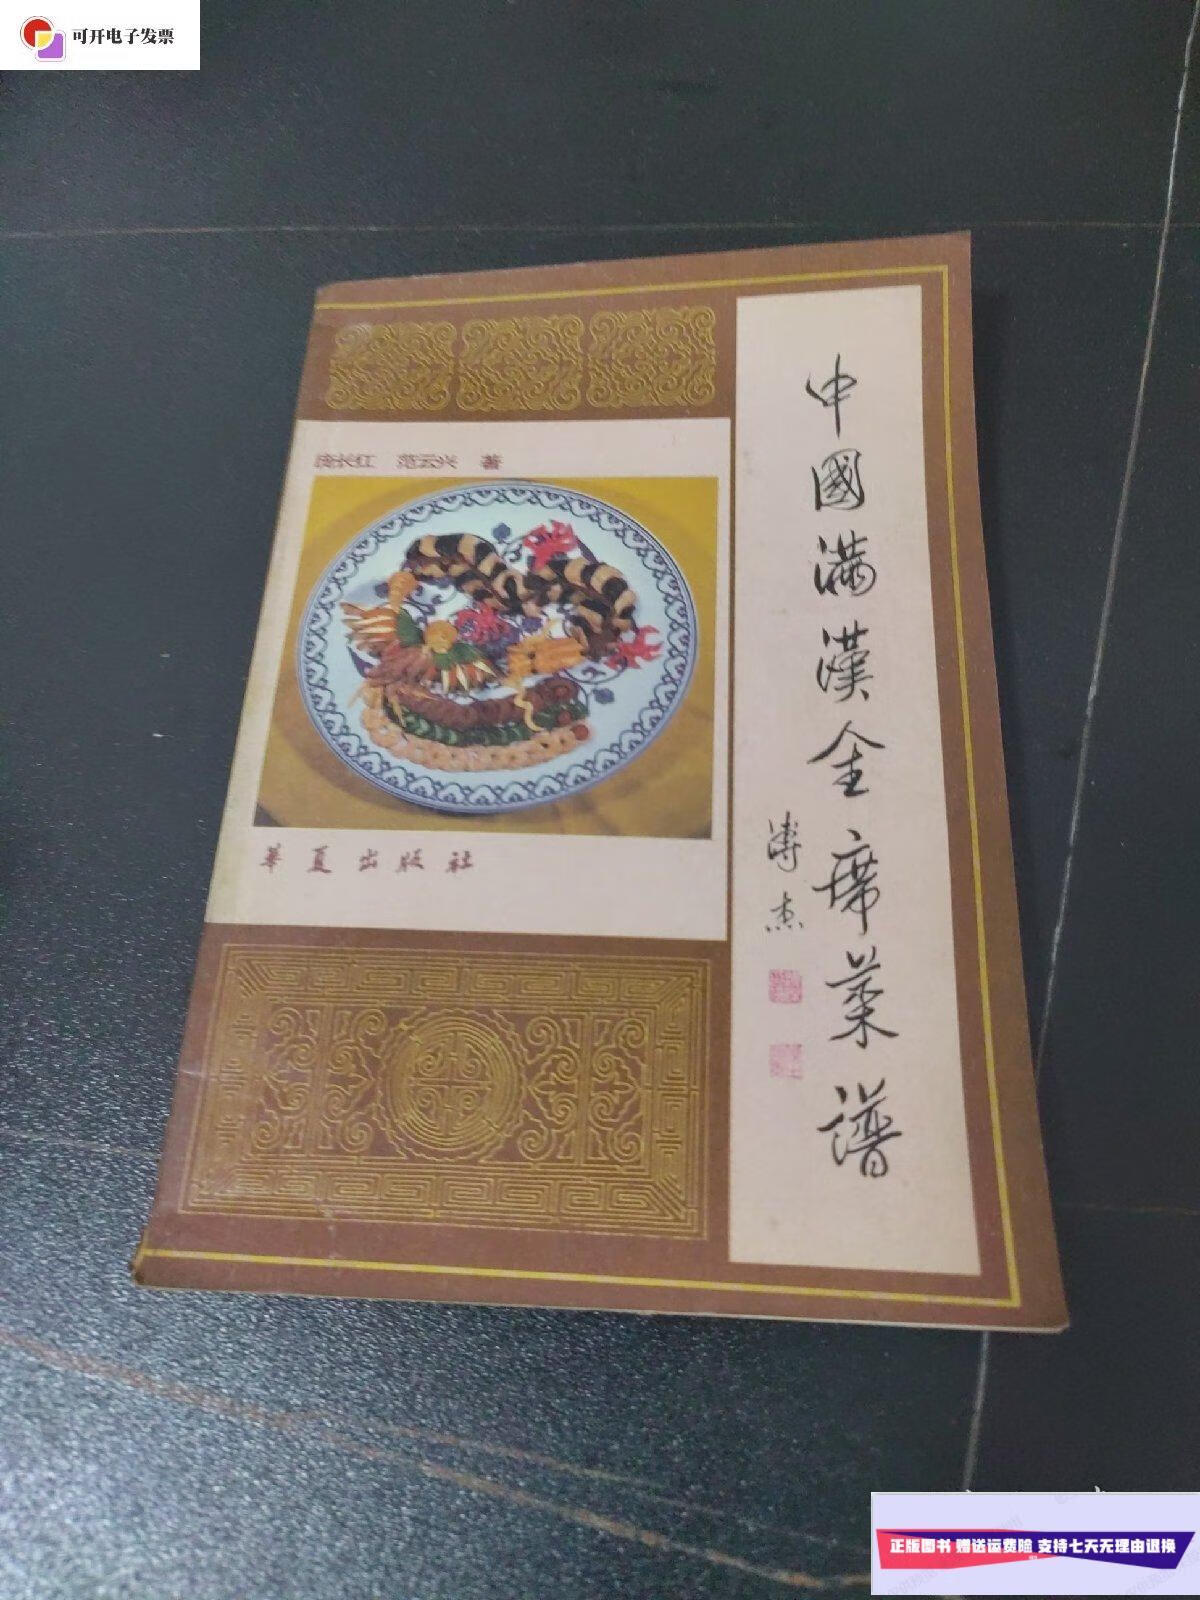 可开电子发票
中國满漢全席菜谱
溥杰
庞长红 范云兴 著
華夏出版社
正版图书 赠送运费险 支持七天无理由退换